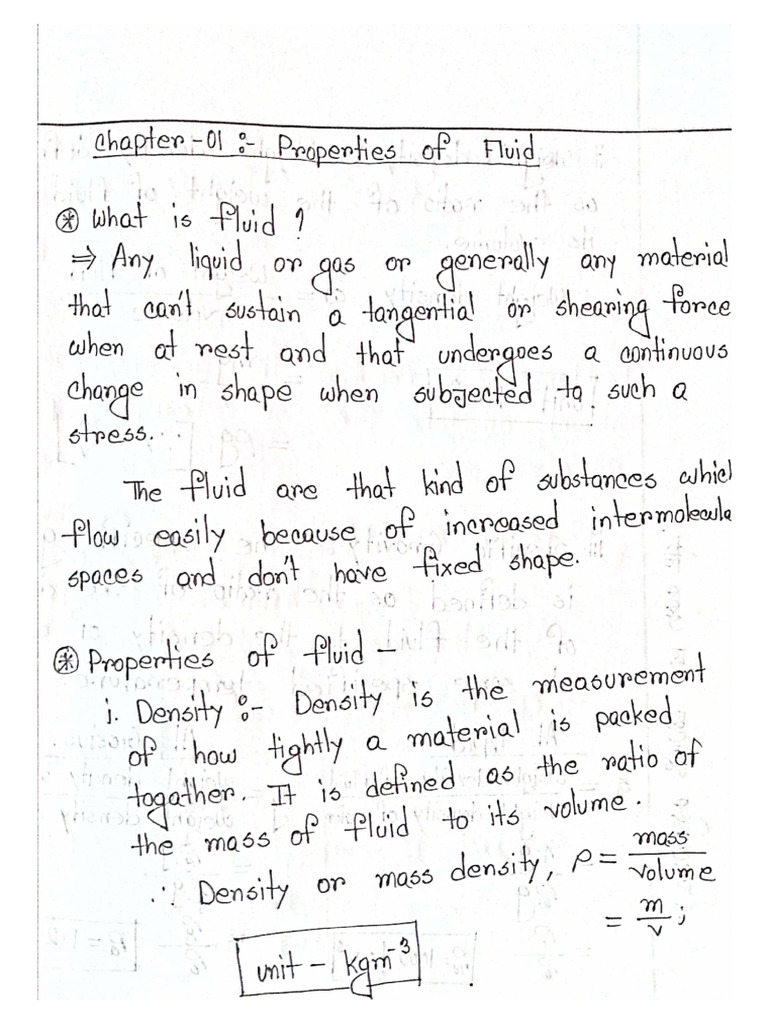 Chapter-01 :- Properties of Fluid
⊛ What is fluid ?
⇒ Any liquid or gas or generally any material
that can't sustain a tangential or shearing force
when at rest and that undergoes a continuous
change in shape when subjected to such a
stress.
The fluid are that kind of substances which
flow easily because of increased intermolecula
spaces and don't have fixed shape.
⊛ Properties of fluid –
i. Density :- Density is the measurement
of how tightly a material is packed
togather. It is defined as the ratio of
the mass of fluid to its volume.
∴ Density or mass density, ρ = mass / volume
= m / v ;
unit – kgm⁻³